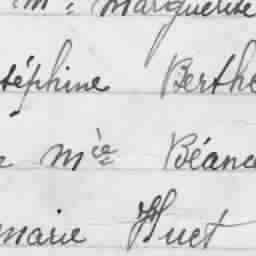 M. Marguerite
téphine Berthe
e Mce Béanc
marie Huet